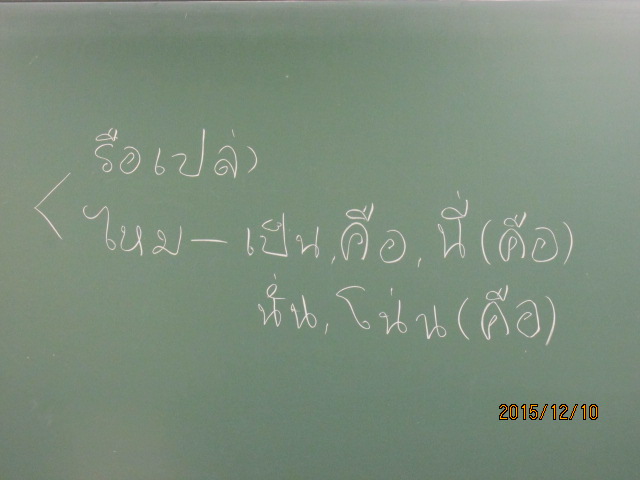 รือเปล่า
< ไหม - เป็น, คือ, นี่ (คือ)
นั่น, โน่น (คือ)
2015/12/10